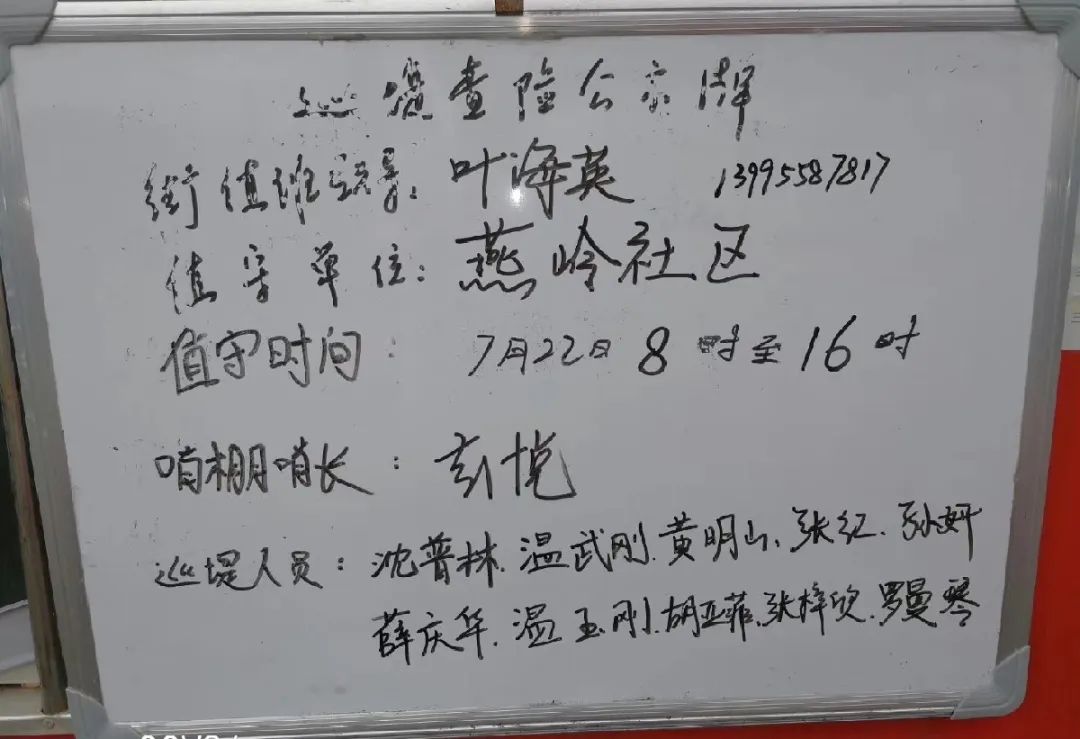 巡堤查险公示牌
街值班领导：叶海英 13995587817
值守单位：燕岭社区
值守时间：7月22日8时至16时
哨棚哨长：
巡堤人员：沈普林、温武刚、黄明山、张红、孙妍
薛庆华、温玉刚、胡亚菲、张梓欣、罗曼琴